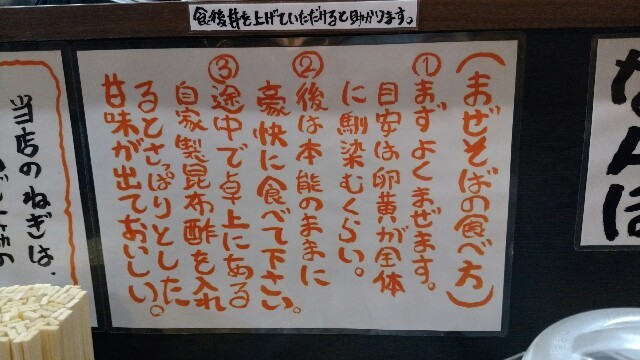 食後丼を上げていただけると助かります。
(まぜそばの食べ方)
①まずよくまぜます。
目安は卵黄が全体
に馴染むくらい。
②後は本能のままに
豪快に食べて下さい。
③途中で卓上にある
自家製昆布酢を入れ
るとさっぱりとした
甘味が出ておいしい。
当店のねぎは、